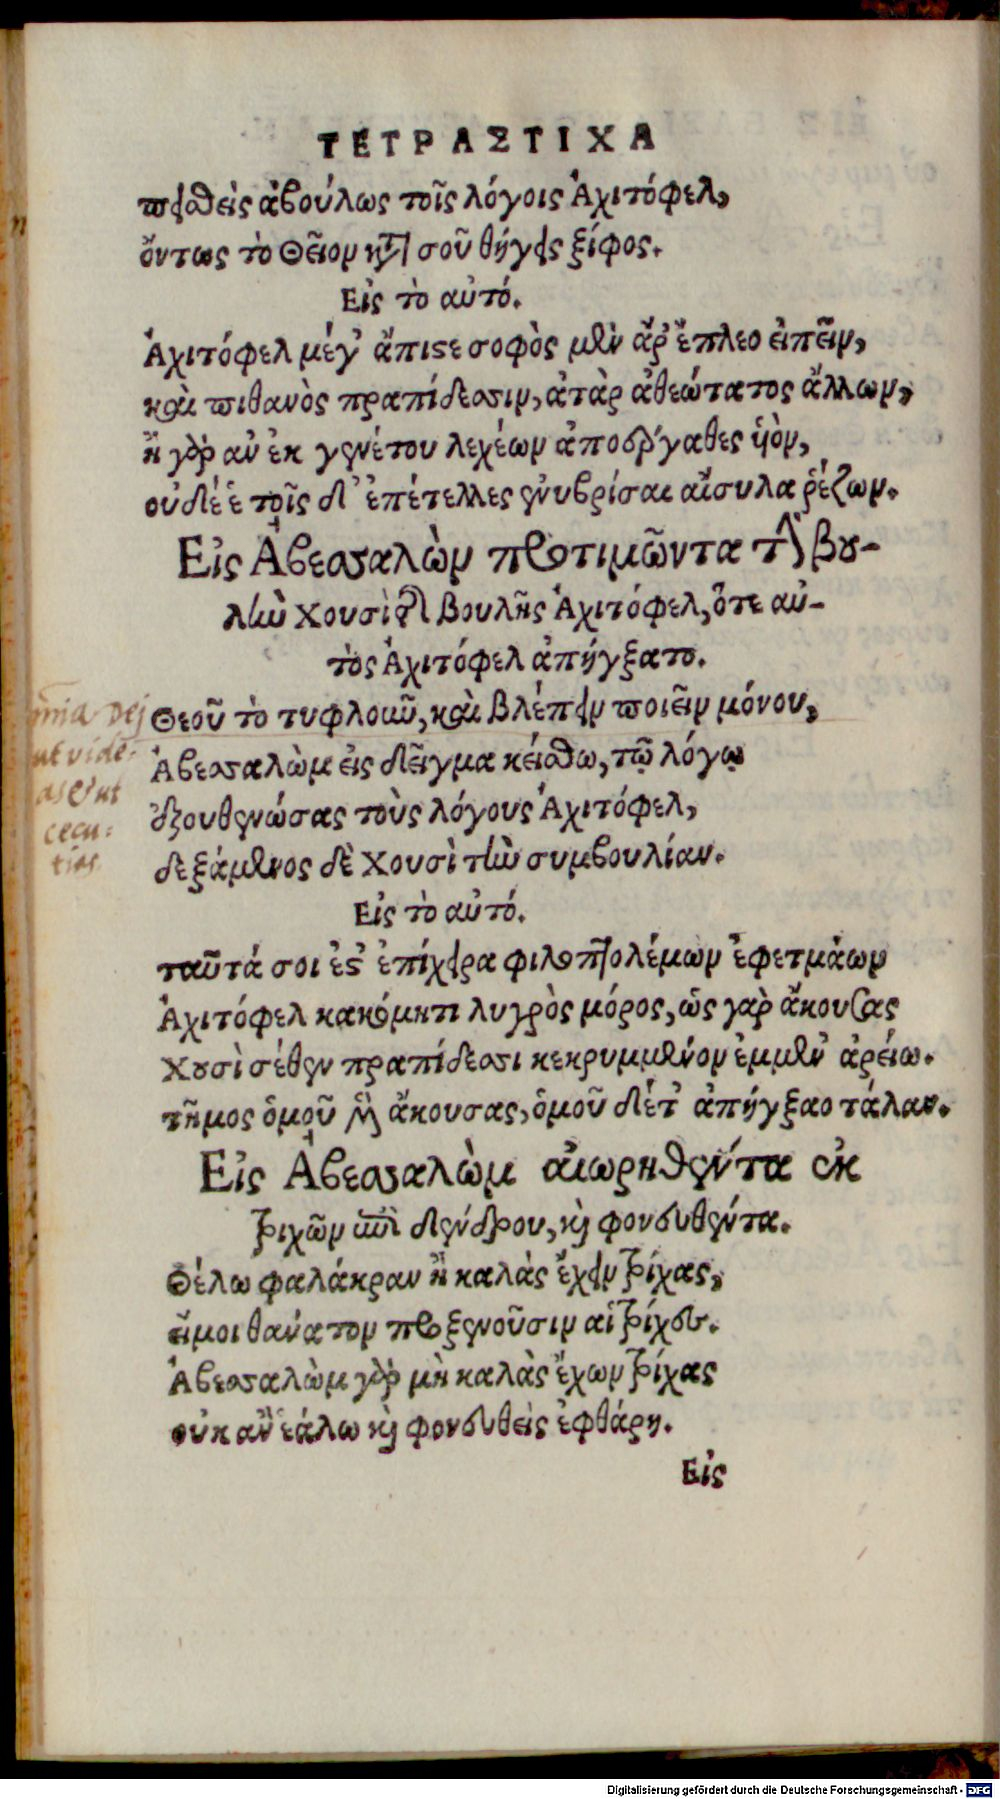 ΤΕΤΡΑΣΤΙΧΑ
πεισθεὶς ἀβούλως τοῖς λόγοις Ἀχιτόφελ,
ὄντως τὸ Θεῖον κατὰ σοῦ θήγεις ξίφος.
Εἰς τὸ αὐτό.
Ἀχιτόφελ μέγ' ἄπιστε σοφὸς μὲν ἄρ' ἔπλεο εἰπεῖν,
καὶ πιθανὸς πραπίδεσσιν, ἀτὰρ ἀθεώτατος ἄλλων,
ἢ γὰρ ἂν ἐκ γενέτου λεχέων ἀποέργαθες ἱὸν,
οὐδέ ἑ τοῖς δ' ἐπέτελλες ἐνυβρίσαι αἴσυλα ῥέζων.
Εἰς Ἀβεσσαλὼμ προτιμῶντα τὴν βου-
λὴν Χουσὶ τῆς βουλῆς Ἀχιτόφελ, ὅτε αὐ-
τὸς Ἀχιτόφελ ἀπήγξατο.
Θεοῦ τὸ τυφλοῦν, καὶ βλέπειν ποιεῖν μόνου,
Ἀβεσσαλὼμ εἰς δεῖγμα κείσθω, τῷ λόγῳ
ἐξουθενώσας τοὺς λόγους Ἀχιτόφελ,
δεξάμενος δὲ Χουσὶ τὴν συμβουλίαν.
Εἰς τὸ αὐτό.
ταῦτά σοι ἐστ' ἐπίχειρα φιλοπτολέμων ἐφετμάων
Ἀχιτόφελ κακόμητι λυγρὸς μόρος, ὡς γὰρ ἄκουσας
Χουσὶ σέθεν πραπίδεσσι κεκρυμμένον ἔμμεν' ἀρείω.
τῆμος ὁμοῦ μὲν ἄκουσας, ὁμοῦ δέ τ' ἀπήγξαο τάλαν.
Εἰς Ἀβεσσαλὼμ αἰωρηθέντα ἐκ
τριχῶν ἐπὶ δένδρου, καὶ φονευθέντα.
Θέλω φαλάκραν ἢ καλὰς ἔχειν τρίχας,
εἴ μοι θάνατον προξενοῦσιν αἱ τρίχες.
Ἀβεσσαλὼμ γὰρ μὴ καλὰς ἔχων τρίχας
οὐκ ἂν ἑάλω καὶ φονευθεὶς ἐφθάρη.
Εἰς
Dej
ut vide-
as et ut
cecu-
ties
Digitalisierung gefördert durch die Deutsche Forschungsgemeinschaft - DFG